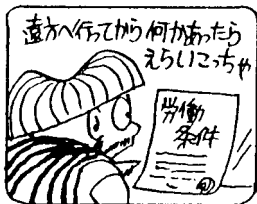 直方へ行ってから何かあったら
えらいこっちゃ
労働
条件